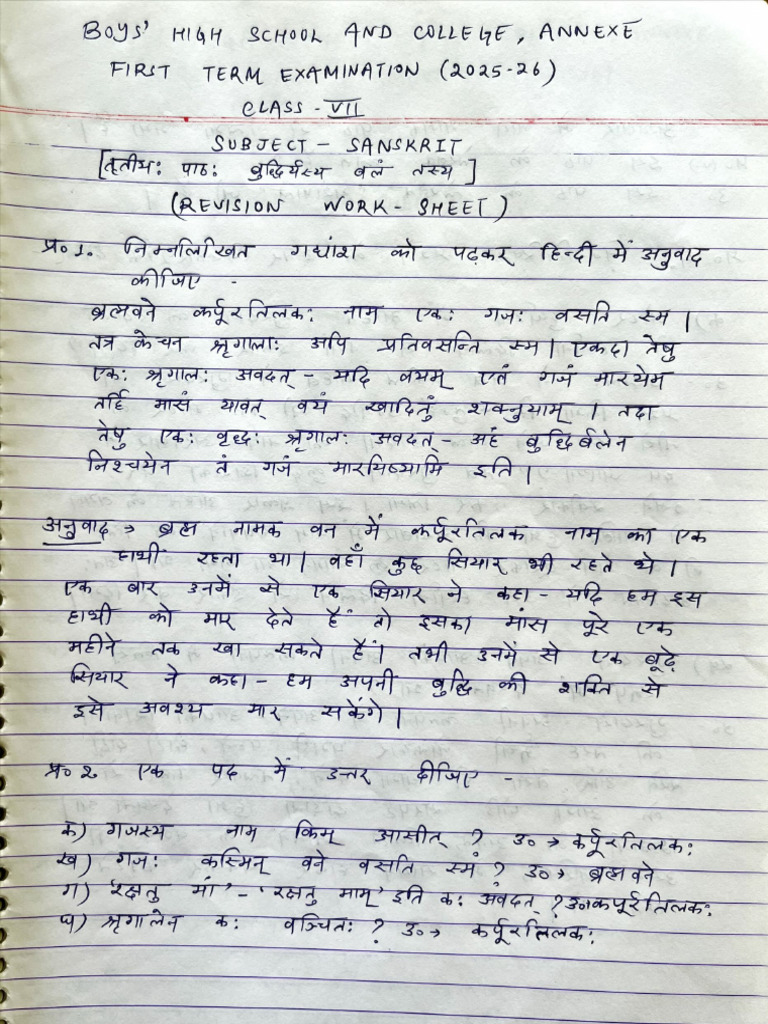 BOYS' HIGH SCHOOL AND COLLEGE, ANNEXE
FIRST TERM EXAMINATION (2025-26)
CLASS - VII
SUBJECT - SANSKRIT
[तृतीय: पाठ: बुद्धिर्यस्य बलं तस्य]
(REVISION WORK-SHEET)
प्र० 1. निम्नलिखित गद्यांश को पढ़कर हिन्दी में अनुवाद
कीजिए -
ब्रह्मवने कर्पूरतिलक: नाम एक: गज: वसति स्म |
तत्र केचन श्रृगाला: अपि प्रतिवसन्ति स्म | एकदा तेषु
एक: श्रृगाल: अवदत् - यदि वयम् एतं गजं मारयेम
तर्हि मासं यावत् वयं खादितुं शक्नुयाम् | तदा
तेषु एक: वृद्ध: श्रृगाल: अवदत् - अहं बुद्धिर्बलेन
निश्चयेन तं गजं मारयिष्यामि इति |
अनुवाद → ब्रह्म नामक वन में कर्पूरतिलक नाम का एक
हाथी रहता था | वहाँ कुछ सियार भी रहते थे |
एक बार उनमें से एक सियार ने कहा - यदि हम इस
हाथी को मार देते हैं तो इसका मांस पूरे एक
महीने तक खा सकते हैं | तभी उनमें से एक बूढ़े
सियार ने कहा - हम अपनी बुद्धि की शक्ति से
इसे अवश्य मार सकेंगे |
प्र० 2. एक पद में उत्तर दीजिए -
क) गजस्य नाम किम् आसीत् ? उ० → कर्पूरतिलक:
ख) गज: कस्मिन् वने वसति स्म ? उ० → ब्रह्मवने
ग) 'रक्षतु मां' - 'रक्षतु माम्' इति क: अवदत् ? उ० कर्पूरतिलक:
घ) श्रृगालेन क: वञ्चित: ? उ० → कर्पूरतिलक: